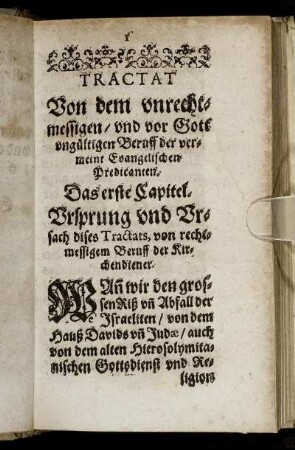 1
TRACTAT
Von dem vnrecht-
messigen/ vnd vor Gott
vngültigen Beruff der ver-
meint Evangelischen
Predicanten.
Das erste Capitel.
Vrsprung vnd Vr-
sach dises Tractats, von recht-
messigem Beruff der Kir-
chendiener.
WAñ wir den gros-
sen Riß vñ Abfall der
Israeliten/ von dem
Hauß Davids vñ Judæ/ auch
von dem alten Hierosolymita-
nischen Gottsdienst vnd Re-
ligion